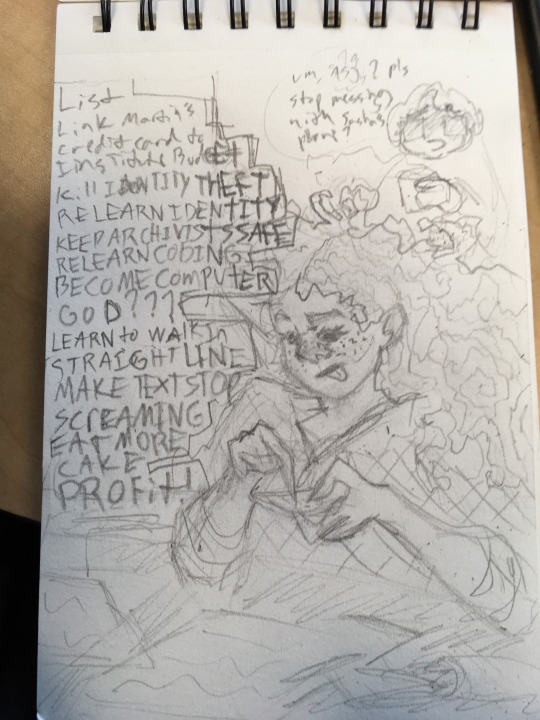 List
Link Martin's
credit card to
Institute Budget
Kill IDENTITY THEFT
RELEARN IDENTITY
KEEP ARCHIVISTS SAFE
RELEARN CODING
BECOME COMPUTER
GOD???
LEARN to WALK IN
STRAIGHT LINE
MAKE TEXT STOP
SCREAMING
EAT MORE
CAKE
PROFIT!
um, ? pls
stop messing
with Sasha's
phone?